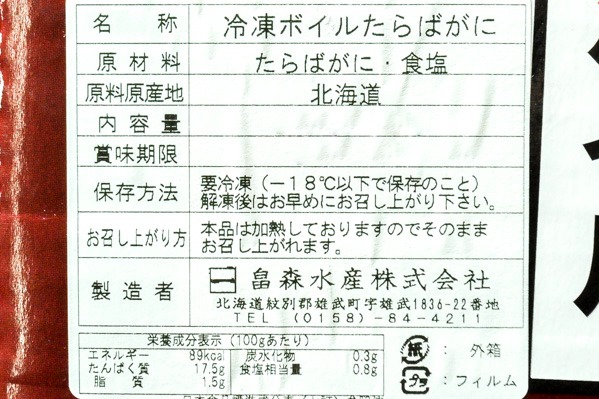 名称 冷凍ボイルたらばがに
原材料 たらばがに・食塩
原料原産地 北海道
内容量
賞味期限
保存方法 要冷凍(－18℃以下で保存のこと)
解凍後はお早めにお召し上がり下さい。
お召し上がり方 本品は加熱しておりますのでそのまま
お召し上がれます。
製造者 畠森水産株式会社
北海道紋別郡雄武町字雄武1836-22番地
TEL (0158)-84-4211
栄養成分表示(100gあたり)
エネルギー 89kcal 炭水化物 0.3g
たんぱく質 17.5g 食塩相当量 0.8g
脂質 1.5g
紙 : 外箱
プラ : フィルム